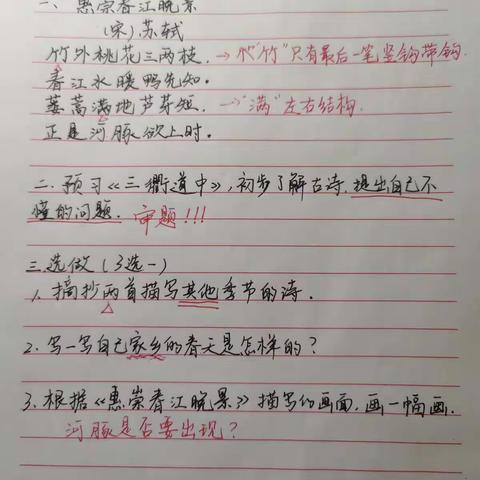 一、惠崇春江晚景
(宋)苏轼
竹外桃花三两枝。→"竹"只有最后一笔竖钩带钩.
春江水暖鸭先知。
蒌蒿满地芦芽短,→"满"左右结构.
正是河豚欲上时。
二.预习《三衢道中》,初步了解古诗.提出自己不
懂的问题. 审题!!!
三.选做(3选一)
1.摘抄两首描写其他季节的诗.
2.写一写自己家乡的春天是怎样的?
3.根据《惠崇春江晚景》描写的画面,画一幅画.
河豚是否要出现?